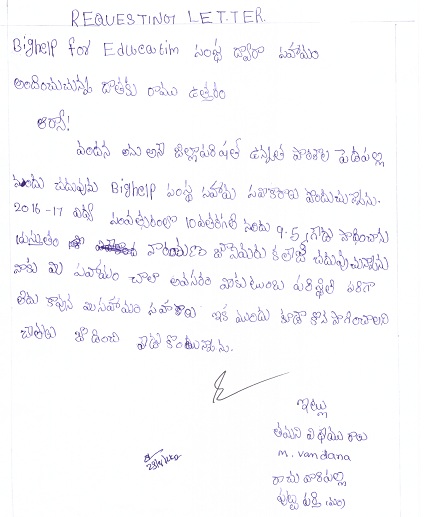 REQUESTING LETTER.
Bighelp for Education సంస్థ ద్వారా సహాయం
అందించుచున్న దాతకు రాయు ఉత్తరం
వందన అను అనే జిల్లాపరిషత్ ఉన్నత పాఠశాల పెడపల్లి
నందు చదువుకు Bighelp సంస్థ సహాయ సహకారాలు పొందుచున్నాను.
2016-17 విద్యా సంవత్సరంలో 10వతరగతి నందు 9.5 గ్రేడు సాధించాను
ప్రస్తుతం నారాయణ జూనియర్ కాలేజీ చదువుచున్నాను
నాకు మీ సహాయం చాలా అవసరం మాకుటుంబ పరిస్థితి సరిగా
లేదు కావున మీసహాయం సహకారాలు ఇక ముందు కూడా కొనసాగించాలని
చేతులు జోడించి వేడు కొంటున్నాను.
ఇట్లు
తమని విధేయురాలు
M. Vandana
రాచువారిపల్లి
పుట్టపర్తి